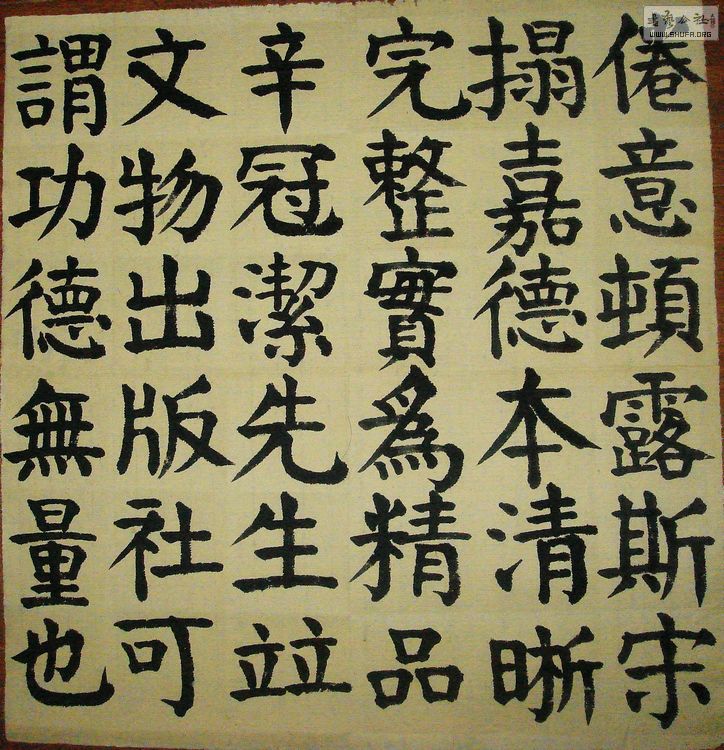 倦意頓露斯宋
搨嘉德本清晰
完整實為精品
辛冠潔先生竝
文物出版社可
謂功德無量也
書藝公社
WWW.SHUFA.ORG